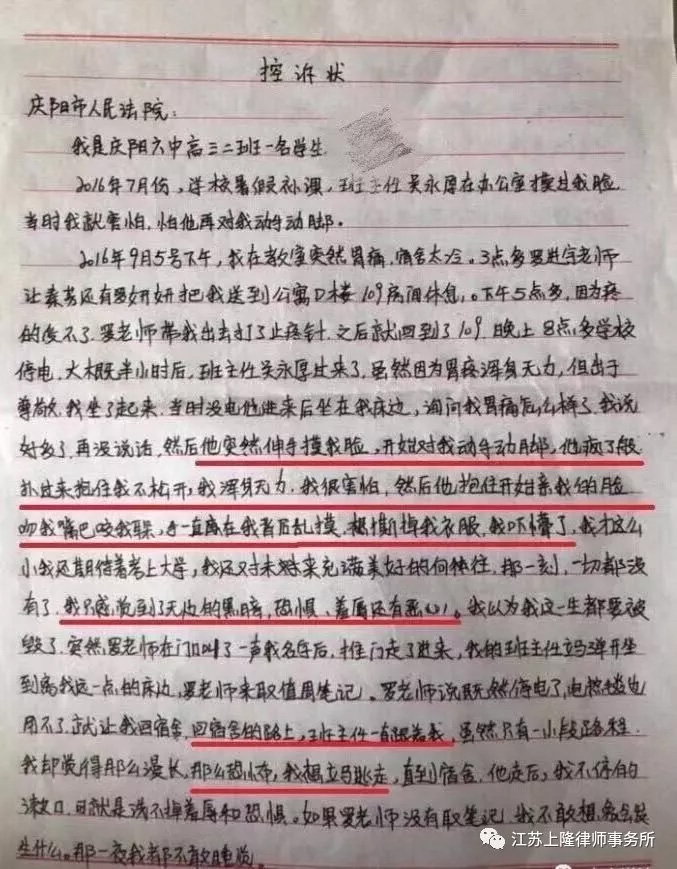 控诉状
庆阳市人民法院:
我是庆阳六中高三二班一名学生
2016年7月份,学校暑假补课,班主任吴永厚在办公室摸过我脸
当时我就害怕,怕他再对我动手动脚。
2016年9月5号下午,我在教室突然胃痛,宿舍太冷。3点多罗进宇老师
让 还有罗妍妍把我送到公寓D楼109房间休息。下午5点多,因为疼
的受不了,罗老师带我出去打了止疼针.之后就回到了109.晚上8点多学校
停电,大概半小时后,班主任吴永厚过来了.虽然因为胃疼浑身无力,但出于
尊敬我坐了起来,当时没电他进来后坐在我床边,询问我胃痛怎么样了.我说
好多了.再没说话.然后他突然伸手摸我脸,开始对我动手动脚,他疯了般
扑过来抱住我不松开,我浑身无力.我很害怕,然后他抱住开始亲我的脸
吻我嘴巴咬我耳朵,手一直在我背后乱摸,想撕掉我衣服,我吓懵了,我才这么
小我还期待着考上大学,我还对未来充满美好的向往,那一刻,一切都没
有了.我只感觉到了无边的黑暗,恐惧、羞辱还有恶心。我以为我这一生都要被
毁了.突然罗老师在门口叫了一声我名字后,推门走了进来,我的班主任立马弹开坐
到离我远一点的床边,罗老师来取值周笔记。罗老师说既然停电了,电热毯也
用不了.就让我回宿舍,回宿舍的路上,班主任一直跟着我,虽然只有一小段路程.
我却觉得那么漫长,那么恐怖,我想立马逃走,直到宿舍.他走后,我不停的
漱口,可就是洗不掉羞辱和恐惧。如果罗老师没有取笔记,我不敢想象会发
生什么。那一夜我都不敢睡觉。
江苏上隆律师事务所